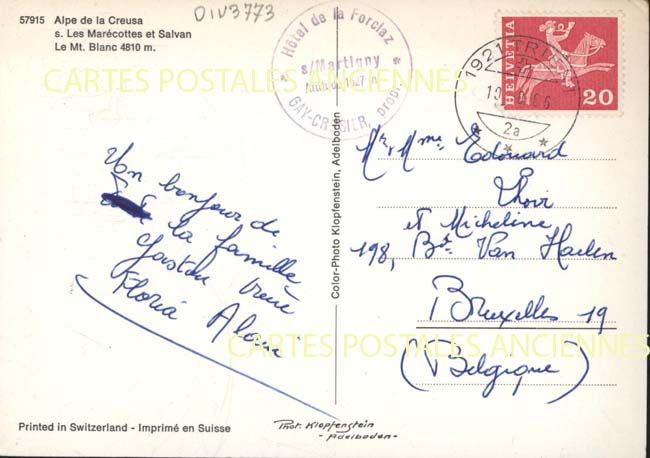 57915 Alpe de la Creusa
s. Les Marécottes et Salvan
Le Mt. Blanc 4810 m.
01V3773
Hôtel de la Forclaz
s/Martigny
Altitude 1527 m
GAY-CROSIER, prop.
1921 TRIENT
2a
HELVETIA
20
CARTES POSTALES ANCIENNES
Un bonjour de
la famille
Gaston Irène
Floria Alain
Color-Photo Klopfenstein, Adelboden
Mr. Mme. Edouard
Thoir
et Micheline
198, Bd. Van Haelen
Bruxelles 19
(Belgique)
CARTES POSTALES ANCIENNES
Printed in Switzerland - Imprimé en Suisse
Phot. Klopfenstein
- Adelboden -